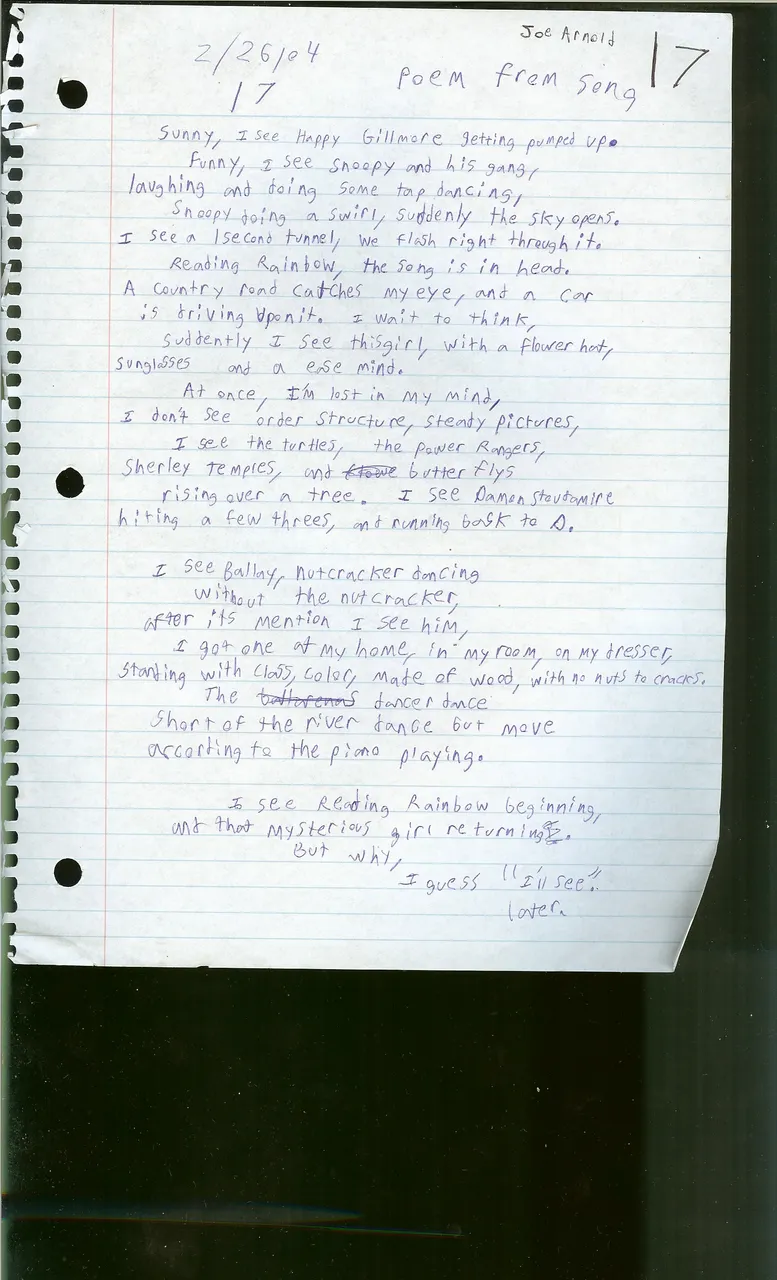 Joe Arnold
2/26/04
17
17
Poem from song
Sunny, I see Happy Gillmore getting pumped up.
Funny, I see Snoopy and his gang,
laughing and doing some tap dancing,
Snoopy doing a swirl, suddenly the sky opens.
I see a 1second tunnel, we flash right through it.
Reading Rainbow, the song is in head.
A country road catches my eye, and a car
is driving upon it. I wait to think,
suddently I see this girl, with a flower hat,
sunglasses and a ease mind.
At once, I'm lost in my mind,
I don't see order structure, steady pictures,
I see the turtles, the power Rangers,
Sherley Temples, and butter flys
rising over a tree. I see Damen Stoudamire
hiting a few threes, and running back to D.
I see Ballay, nutcracker dancing
without the nutcracker,
after its mention I see him,
I got one at my home, in my room, on my dresser,
standing with class, color, made of wood, with no nuts to cracks.
The ballarenas dancer dance
short of the river dance but move
according to the piano playing.
I see Reading Rainbow beginning,
and that mysterious girl returning.
But why,
I guess "I'll see".
later.